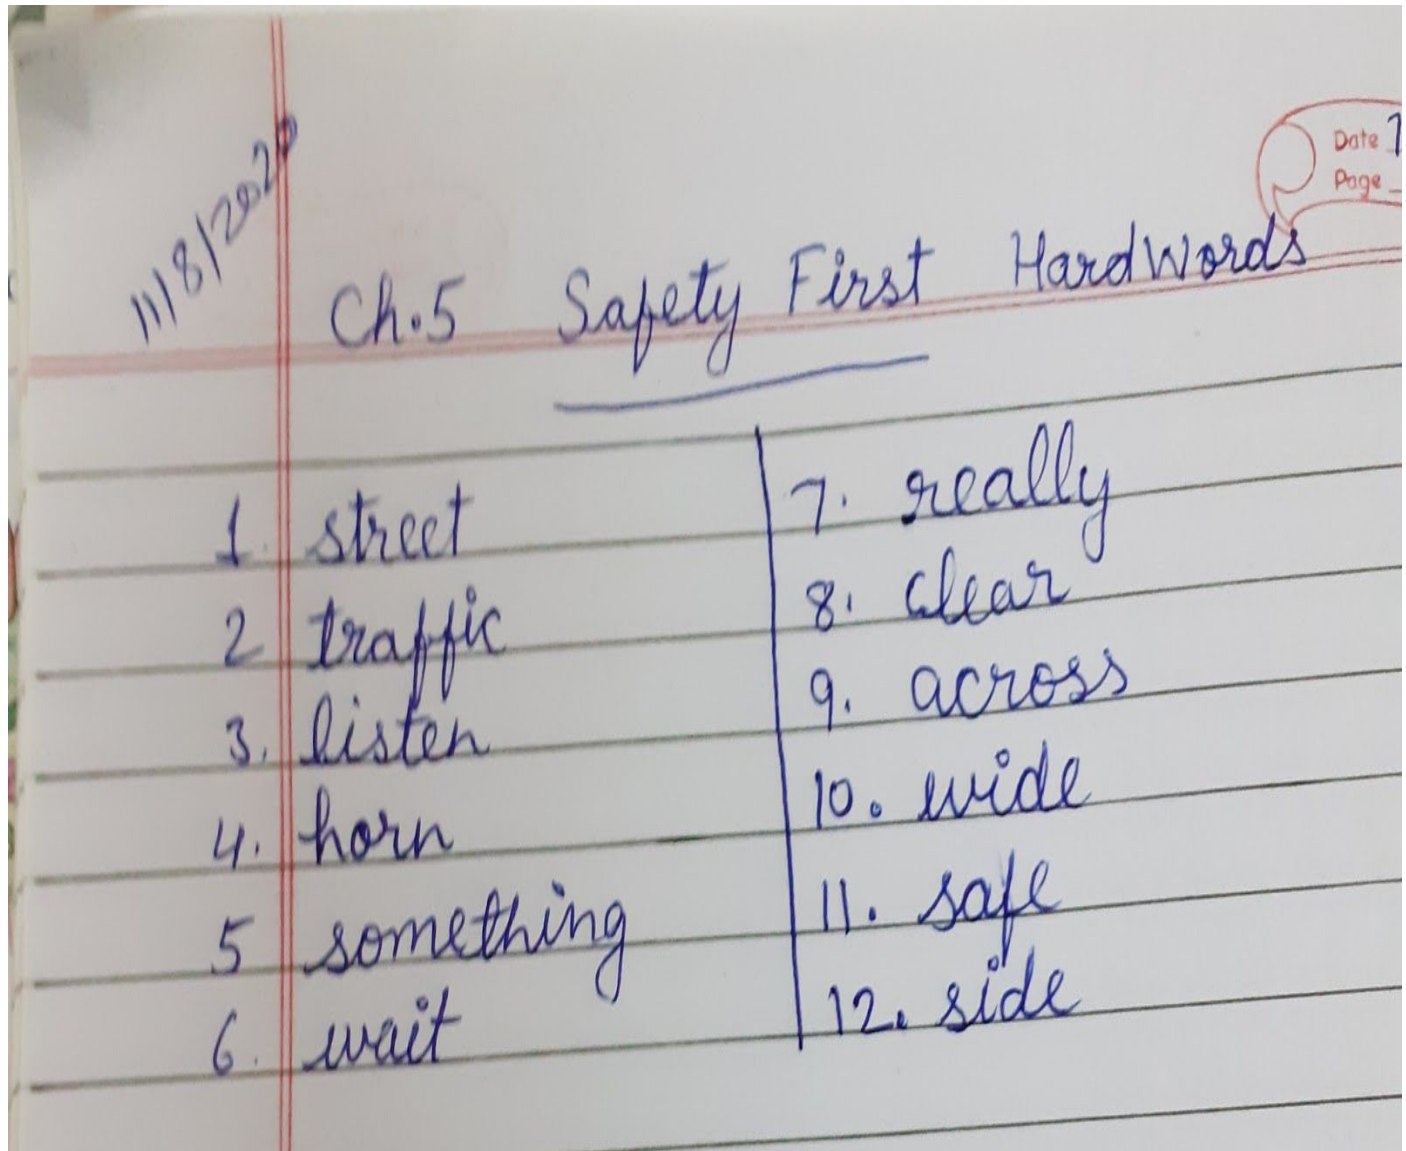 Date
Page
11/8/2020
Ch.5 Safety First Hard Words
1. street
2 traffic
3. listen
4. horn
5 something
6. wait
7. really
8. clear
9. across
10. wide
11. safe
12. side